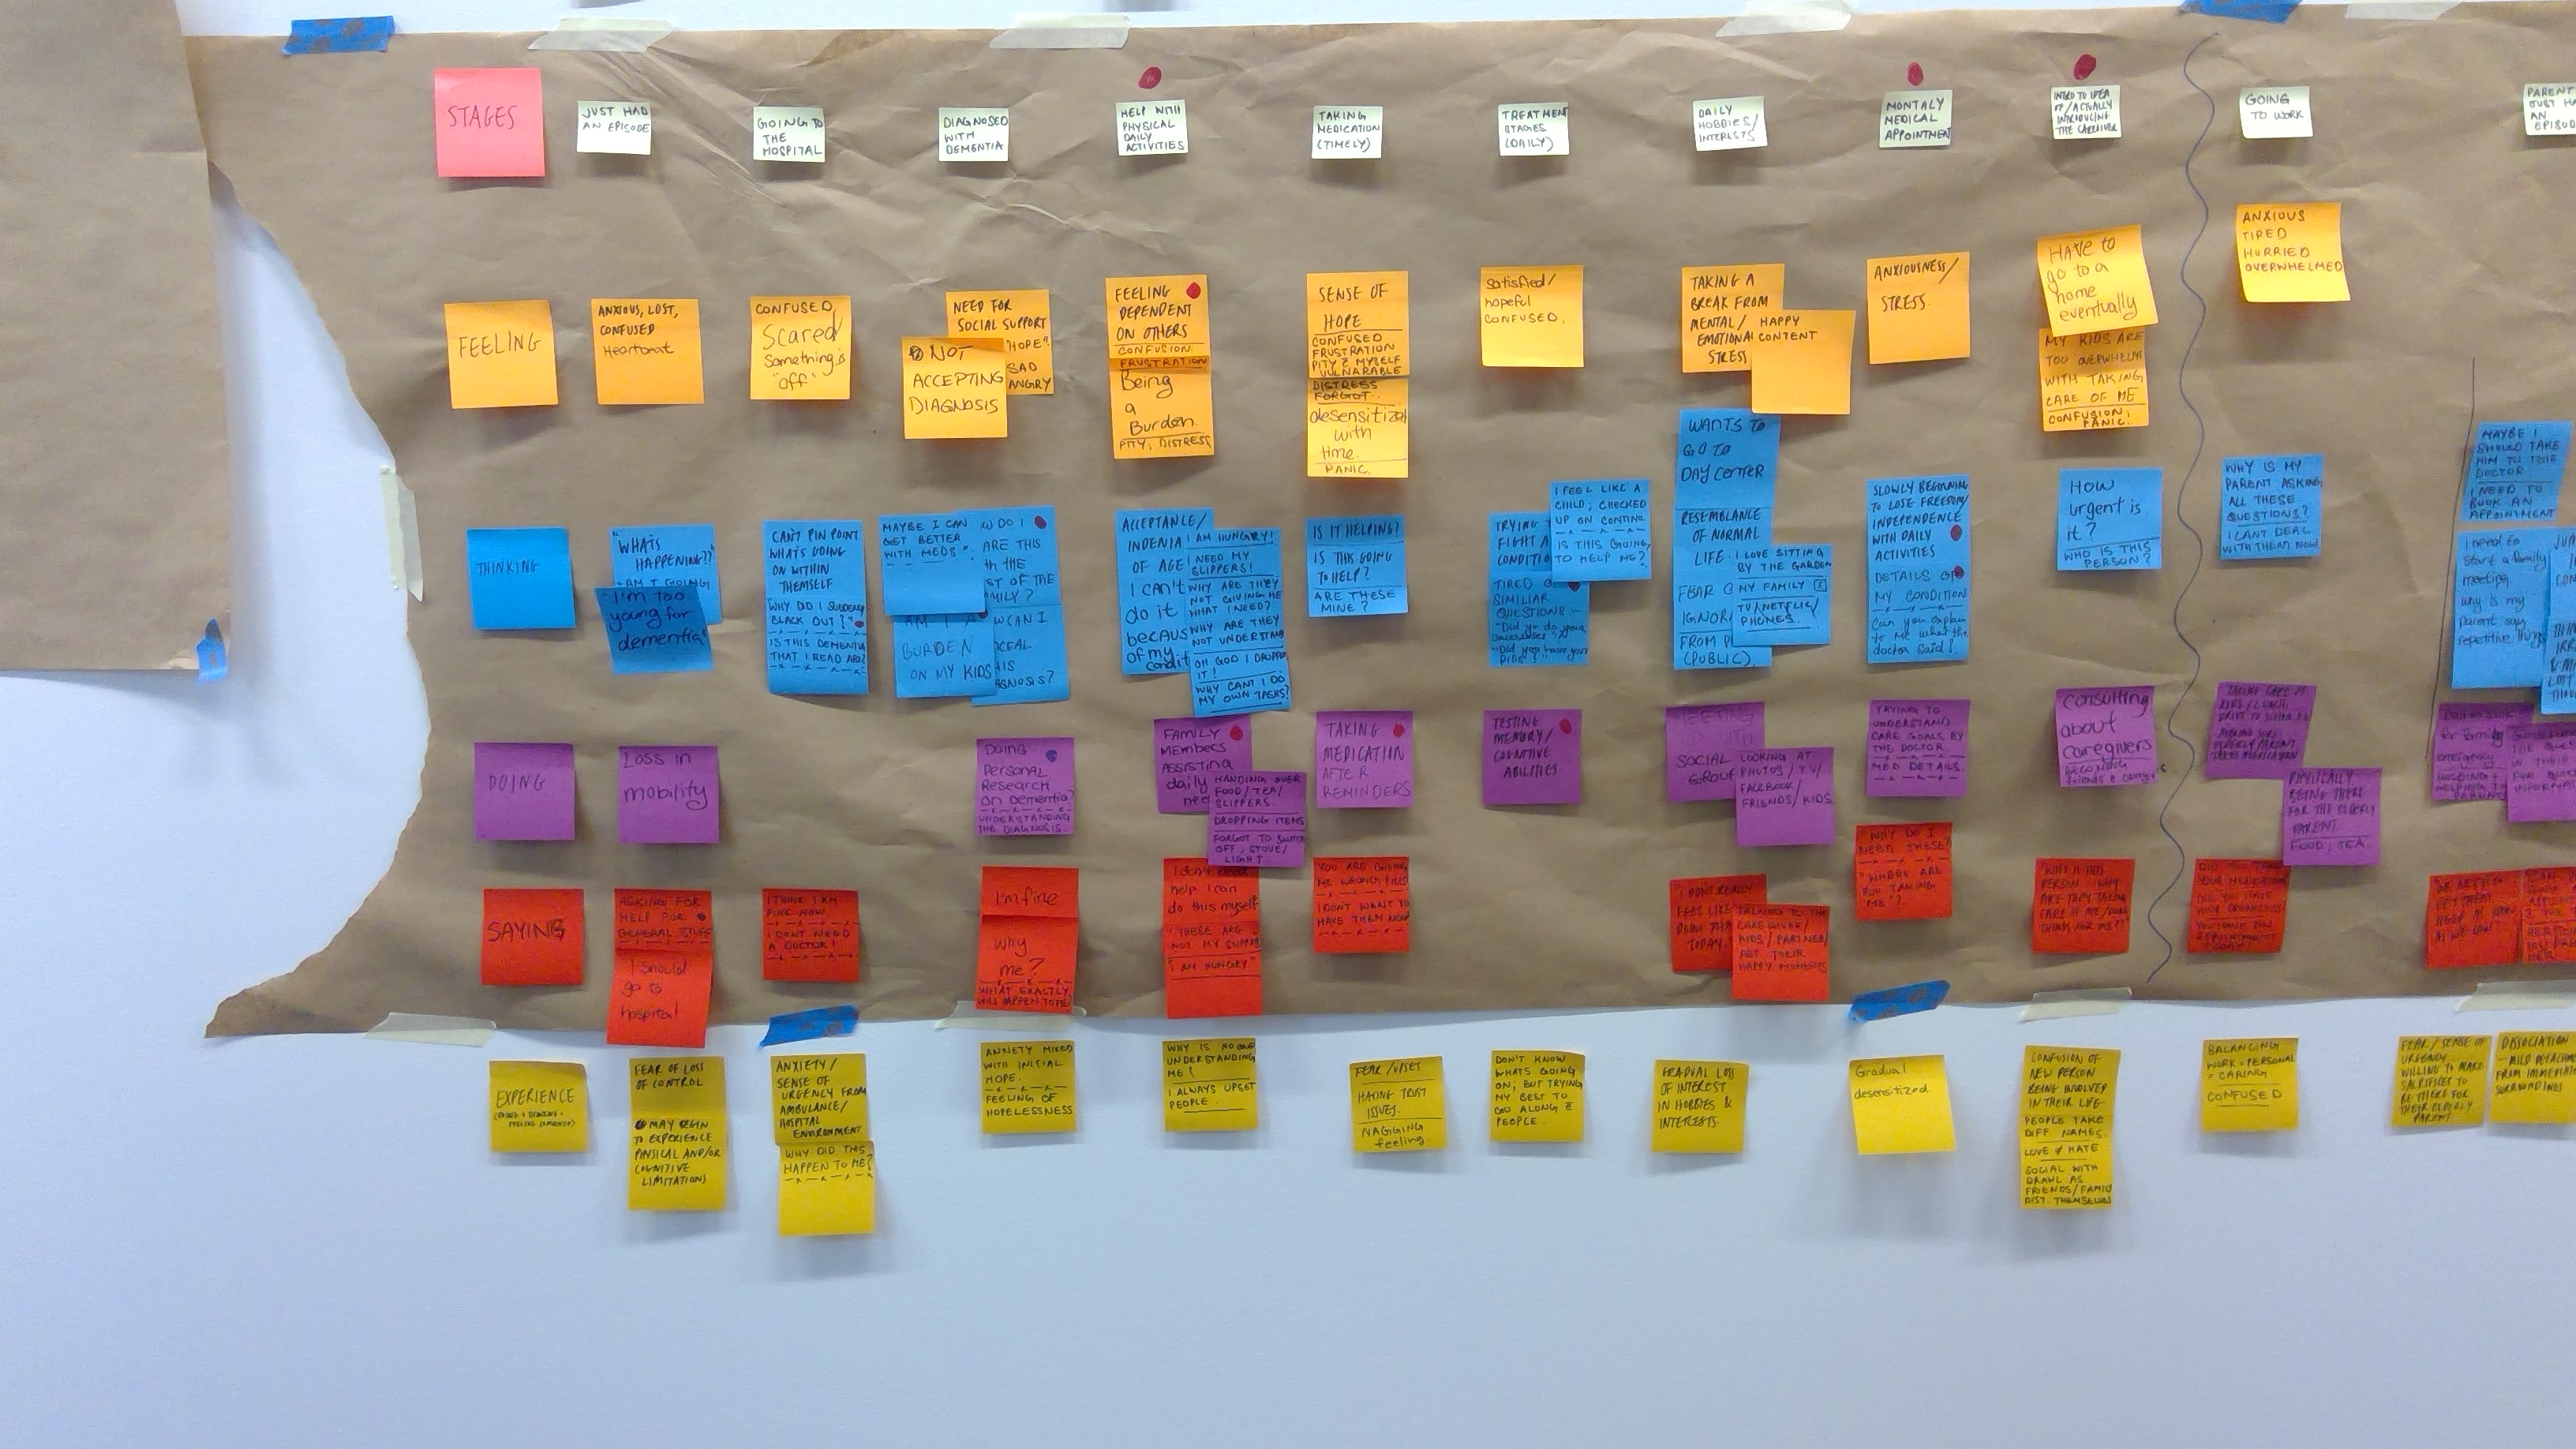 STAGES
JUST HAD
AN EPISODE
GOING TO
THE
HOSPITAL
DIAGNOSED
WITH
DEMENTIA
HELP WITH
PHYSICAL
DAILY
ACTIVITIES
TAKING
MEDICATION
(TIMELY)
TREATMENT
STAGES
(DAILY)
DAILY
HOBBIES/
INTERESTS
MONTALY
MEDICAL
APPOINTMENT
INTRO TO IDEA
OF/ACTUALLY
INTRODUCING
THE CAREGIVER
GOING
TO WORK
PARENT
JUST HA
AN
EPISOD
FEELING
ANXIOUS, LOST,
CONFUSED
Heartbeat
CONFUSED,
Scared/
Something's
"off"
NEED FOR
SOCIAL SUPPORT
"HOPE"
SAD
ANGRY
NOT
ACCEPTING
DIAGNOSIS
FEELING
DEPENDENT
ON OTHERS
CONFUSION
FRUSTRATION
Being
a
Burden.
PITY, DISTRESS
SENSE OF
HOPE
CONFUSED
FRUSTRATION
PITY & MYSELF
VULNARABLE
DISTRESS
FORGOT.
desensitized
with
time.
PANIC.
Satisfied/
hopeful
CONFUSED.
TAKING A
BREAK FROM
MENTAL/
EMOTIONAL
STRESS
HAPPY
CONTENT
ANXIOUSNESS/
STRESS.
HAVE to
go to a
home
eventually
MY KIDS ARE
TOO OVERWHELM
WITH TAKING
CARE OF ME
CONFUSION,
PANIC.
ANXIOUS
TIRED
HURRIED
OVERWHELMED
THINKING
"WHATS
HAPPENING??"
"AM I GOING
I'm too
young for
dementia"
CAN'T PIN POINT
WHAT'S GOING
ON WITHIN
THEMSELF
"WHY DID I SUDDENLY
BLACK OUT?"
IS THIS DEMENTIA
THAT I READ ABT?
MAYBE I CAN
GET BETTER
WITH MEDS".
W DO I
ARE THIS
th the
ST OF THE
MILY?
AM I A
BURDEN
ON MY KIDS
W CAN I
CEAL
HIS
GNOSIS?
ACCEPTANCE/
INDENIA
OF AGE
I can't
do it
becaus
of my
condit
I AM HUNGRY!
I NEED MY
SLIPPERS!
WHY ARE THEY
NOT GIVING ME
WHAT I NEED?
WHY ARE THEY
NOT UNDERSTAND
OH GOD I DROPPED
IT!
WHY CANT I DO
MY OWN TASKS?
IS IT HELPING?
IS THIS GOING
TO HELP?
ARE THESE
MINE?
TRYING
FIGHT A
CONDITIO
TIRED O
SIMILIAR
QUESTIONS.
"Did you have your
PILL?"
I FEEL LIKE A
CHILD; CHECKED
UP ON CONTINO.
IS THIS GOING
TO HELP ME?
WANTS TO
GO TO
DAY CENTER
RESEMBLANCE
OF NORMAL
LIFE.
FEAR O
IGNOR
FROM P
(PUBLIC).
I LOVE SITTING
BY THE GARDEN
MY FAMILY
TV/NETFLIX/
PHONES.
SLOWLY BEGINNING
TO LOSE FREEDOM/
INDEPENDENCE
WITH DAILY
ACTIVITIES
DETAILS OF
MY CONDITION
Can you explain
to me what the
doctor said?
HOW
urgent is
it?
WHO IS THIS
PERSON?
WHY IS MY
PARENT ASKING
ALL THESE
QUESTIONS?
I CANT DEAL
WITH THEM NOW
MAYBE I
SHOULD TAKE
HIM TO THE
DOCTOR
I NEED TO
BOOK AN
APPOINTMENT
I need to
start a family
meeting
why is my
Parent say
repetitive things
DOING
Loss in
mobility
DOING
Personal
Research
on Dementia?
UNDERSTANDING
THE DIAGNOSIS.
FAMILY
MEMBERS
ASSISTING
daily
nee
HANDING OVER
FOOD/TEA/
SLIPPERS.
DROPPING ITEMS
FORGOT TO SWITCH
OFF, STOVE/
LIGHT
TAKING
MEDICATION
AFTER
REMINDERS
TESTING
MEMORY/
COGNITIVE
ABILITIES
MEETING
UP WITH
SOCIAL
GROUP
LOOKING AT
PHOTOS/TV/
FACEBOOK
FRIENDS/KIDS
TRYING TO
UNDERSTAND
CARE GOALS BY
THE DOCTOR
MED DETAILS.
Consulting
about
caregivers
BECOMING
friends
TAKING CARE OF
KIDS/LUNCH
ELDERLY PARENT
TAKES MEDICATION
PHYSICALLY
BEING THERE
FOR THE ELDERLY
PARENT.
FOOD, TEA.
SAYING
ASKING FOR
HELP FOR
GENERAL STUFF
I should
go to
hospital
I THINK I AM
FINE NOW
I DONT NEED
A DOCTOR!
I'm fine
Why
me?
WHAT EXACTLY
WILL HAPPEN TO ME?
I don't need
help I can
do this myself
"THESE ARE
NOT MY SLIPPE
"I AM HUNGRY"
YOU ARE GIVING
ME WRONG PILLS
I DONT WANT TO
HAVE THEM NOW
"I DONT REALLY
FEEL LIKE
TODAY
TALKING TO THE
CARE GIVER/
KIDS/PARTNER/
ABT THEIR
HAPPY MOMENTS
"WHY DO I
NEED THESE?
"WHERE ARE
YOU TAKING
ME"?
"WHO IS THIS
PERSON WHY
ARE THEY TAKING
CARE OF ME
EXPERIENCE
FEAR OF LOSS
OF CONTROL
MAY BEGIN
TO EXPERIENCE
PHYSICAL AND/OR
COGNITIVE
LIMITATIONS
ANXIETY/
SENSE OF
URGENCY FROM
AMBULANCE/
HOSPITAL
ENVIRONMENT
WHY DID THIS
HAPPEN TO ME?
ANXIETY MIXED
WITH INITIAL
HOPE.
FEELING OF
HOPELESSNESS
WHY IS NO ONE
UNDERSTANDING
ME!
I ALWAYS UPSET
PEOPLE.
FEAR/UPSET
HAVING TRUST
ISSUES.
NAGGING
feeling.
DON'T KNOW
WHATS GOING
ON; BUT TRYING
MY BEST TO
GO ALONG
PEOPLE.
GRADUAL LOSS
OF INTEREST
IN HOBBIES &
INTERESTS.
Gradual
desensitized.
CONFUSION OF
NEW PERSON
BEING INVOLVED
IN THEIR LIFE
PEOPLE TAKE
DIFF. NAMES.
LOVE & HATE
SOCIAL WITH
DRAWL AS
FRIENDS/FAMILY
DIST. THEMSELVES
BALANCING
WORK = PERSONAL
= CARING.
CONFUSED
FEAR/SENSE OF
URGENCY
WILLING TO MAKE
SACRIFICES TO
BE THERE FOR
THEIR ELDERLY
PARENT.
DISSOCIATION
-MILD DETACHME
FROM IMMEDIATE
SURROUNDINGS